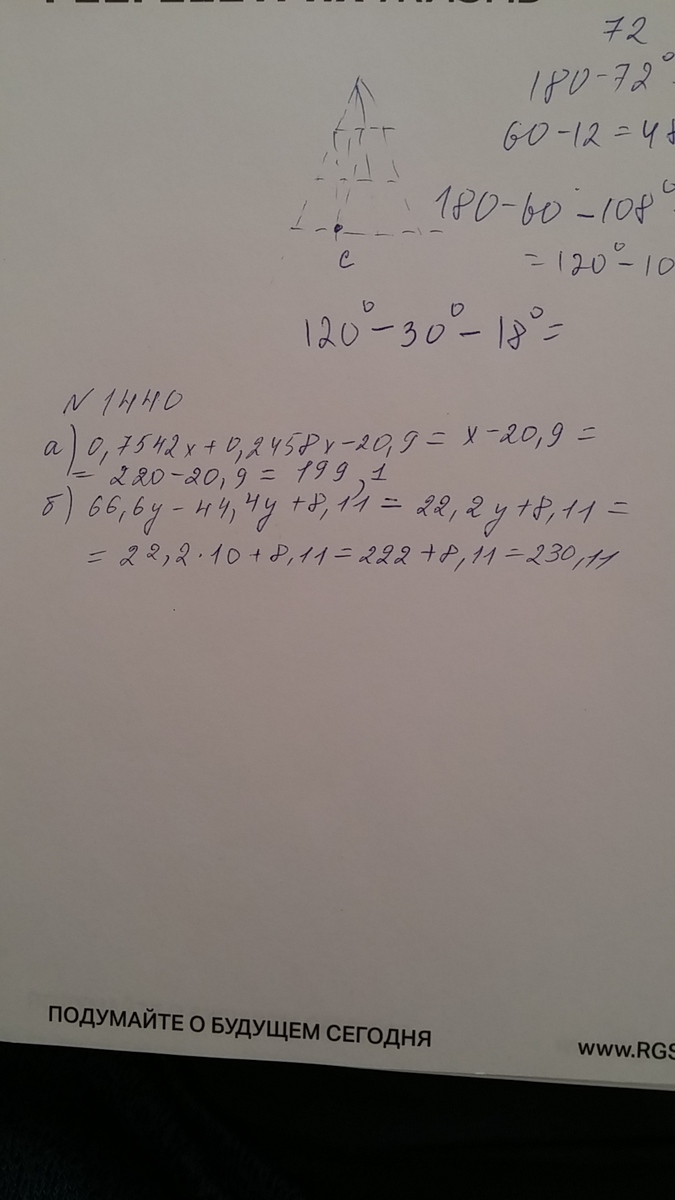 72
180-72°
60-12=48
180-60-108°
=120°-10
C
120°-30°-18°=
N 1440
а) 0,7542x+0,2458x-20,9= x-20,9=
= 220-20,9= 199,1
б) 66,6y-44,4y+8,11= 22,2y+8,11=
= 22,2·10+8,11=222+8,11=230,11
ПОДУМАЙТЕ О БУДУЩЕМ СЕГОДНЯ
www.RGS